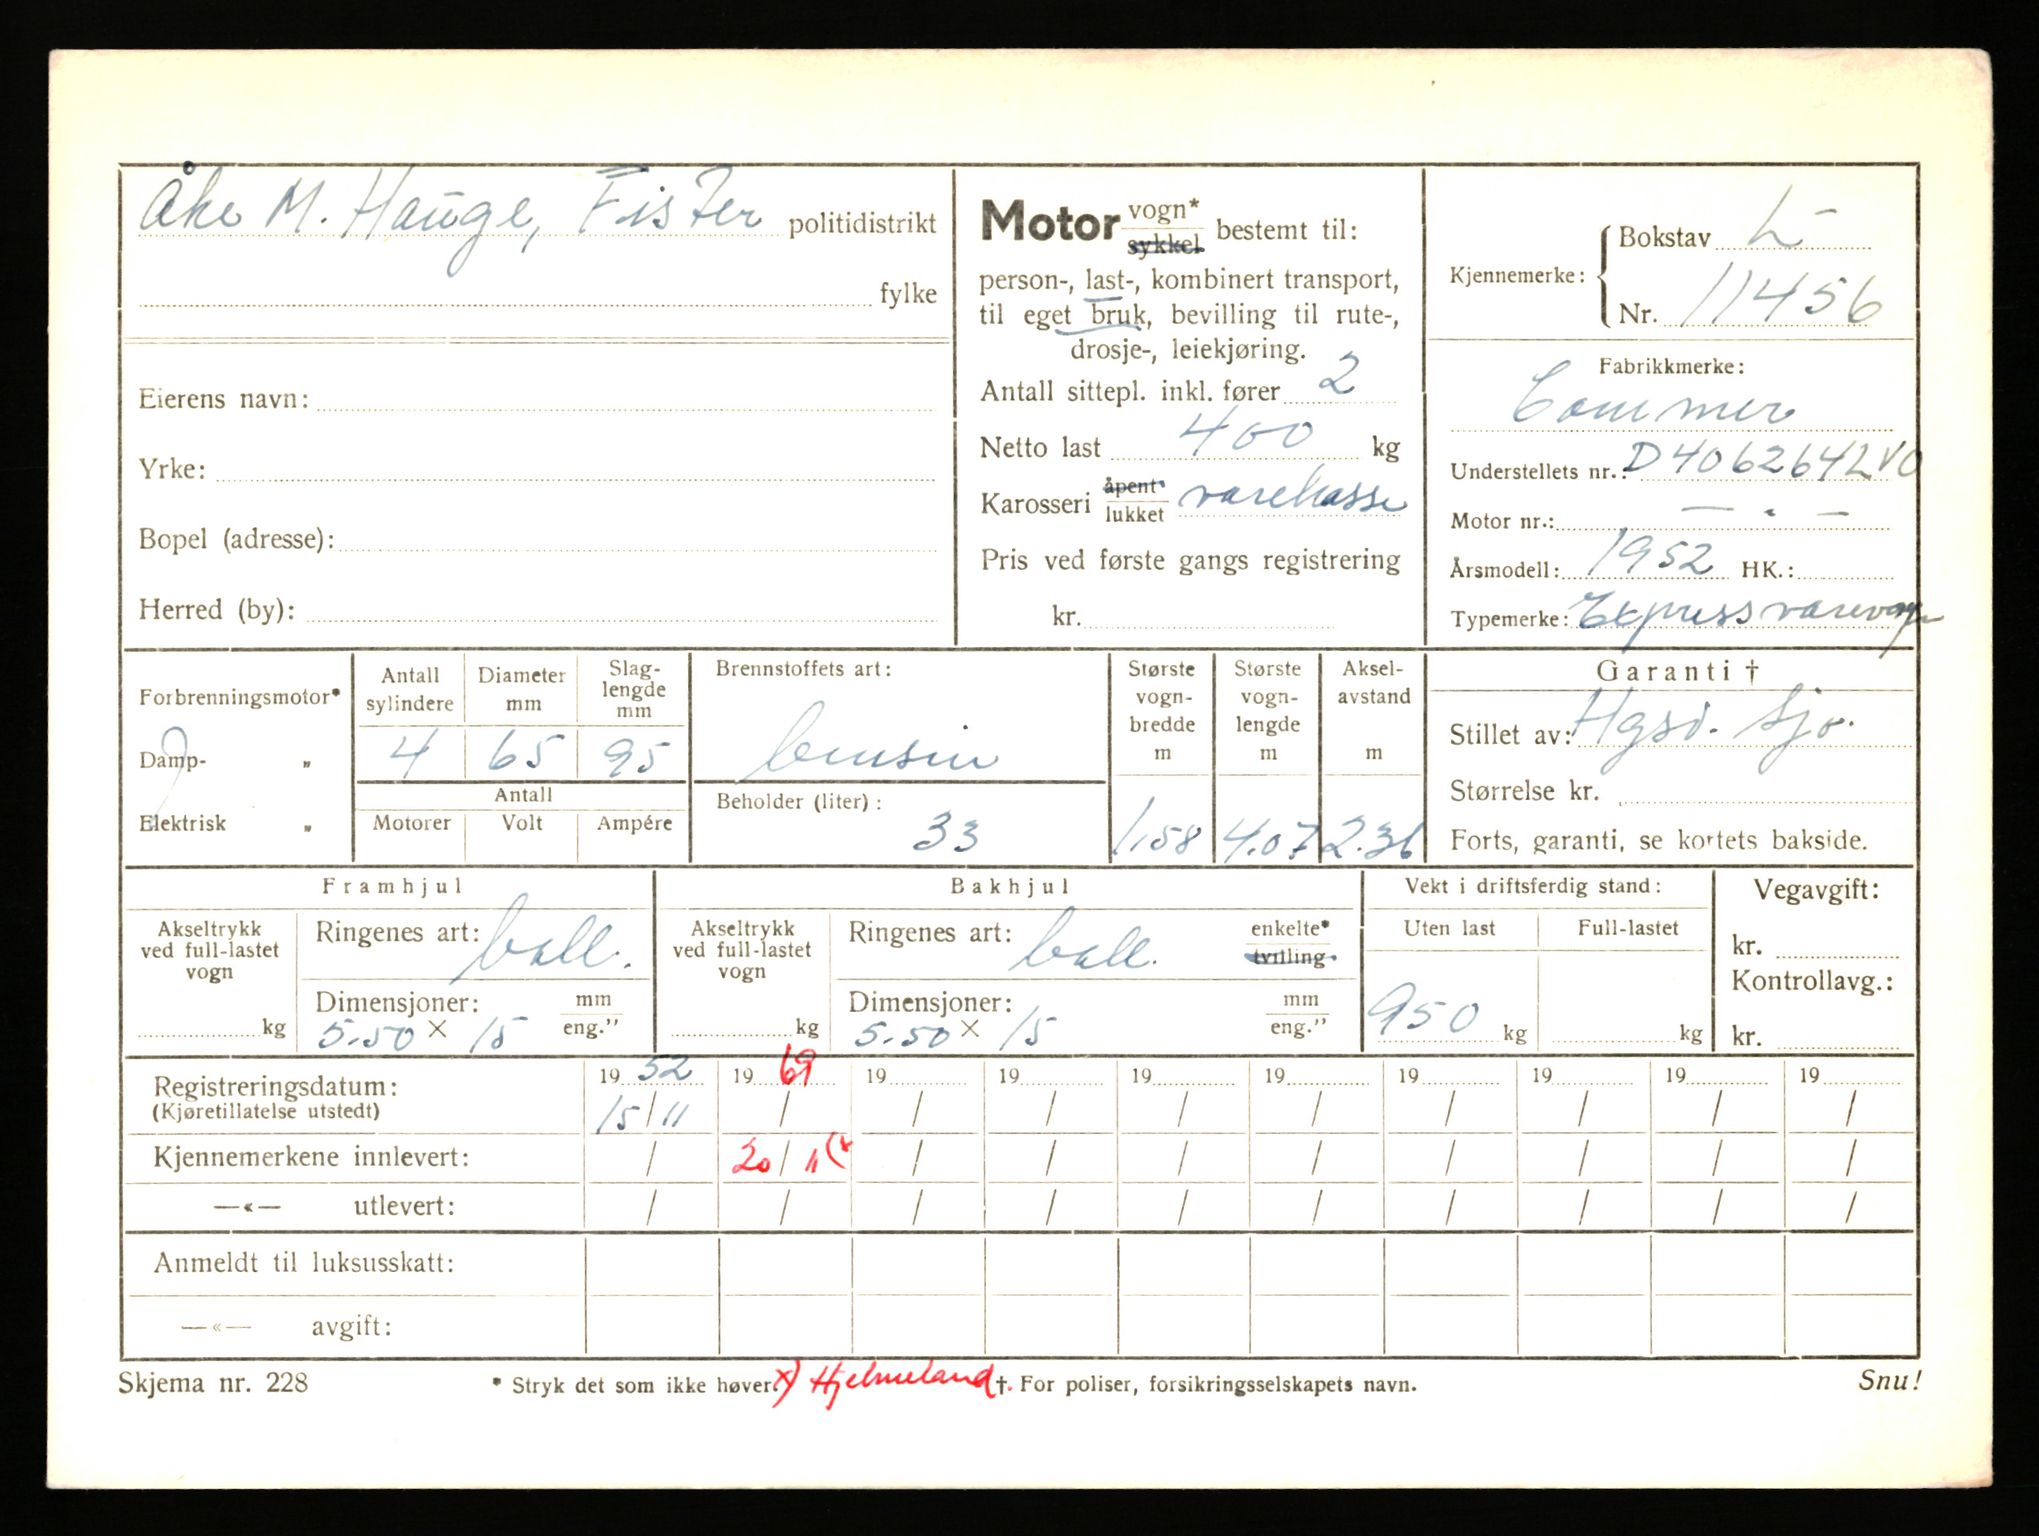 Åke M. Hauge, Fister politidistrikt
fylke
Eierens navn:
Yrke:
Bopel (adresse):
Herred (by):
Motor vogn* sykkel bestemt til:
person-, last-, kombinert transport,
til eget bruk, bevilling til rute-,
drosje-, leiekjøring.
Antall sittepl. inkl. fører 2
Netto last 400 kg
Karosseri åpent* lukket varekasse
Pris ved første gangs registrering
kr.
Kjennemerke: Bokstav L-
Nr. 11456
Fabrikkmerke:
Commer
Understellets nr.: D4062642VO
Motor nr.: — " —
Årsmodell: 1952 HK.:
Typemerke: Express varevogn
Forbrenningsmotor*
Damp- „
Elektrisk „
Antall sylindere
Diameter mm
Slag-lengde mm
4 65 95
Antall
Motorer Volt Ampére
Brennstoffets art:
bensin
Beholder (liter):
33
Største vogn-bredde m
1.58
Største vogn-lengde m
4.07
Aksel-avstand m
2.36
Garanti †
Stillet av: Hgsd. Sjø.
Størrelse kr.
Forts, garanti, se kortets bakside.
Framhjul
Akseltrykk ved full-lastet vogn
kg
Ringenes art: ball.
Dimensjoner: mm
5.50 x 15 eng.”
Bakhjul
Akseltrykk ved full-lastet vogn
kg
Ringenes art: ball. enkelte* tvilling
Dimensjoner: mm
5.50 x 15 eng.”
Vekt i driftsferdig stand:
Uten last Full-lastet
950 kg kg
Vegavgift:
kr.
Kontrollavg.:
kr.
Registreringsdatum: 19 52 19 69 19 19 19 19 19 19 19 19
(Kjøretillatelse utstedt) 15/11 / / / / / / / / /
Kjennemerkene innlevert: / 20/11 (x / / / / / / / /
—«— utlevert: / / / / / / / / / /
Anmeldt til luksusskatt:
—«— avgift:
Skjema nr. 228 * Stryk det som ikke høver. x) Hjelmeland †. For poliser, forsikringsselskapets navn. Snu!